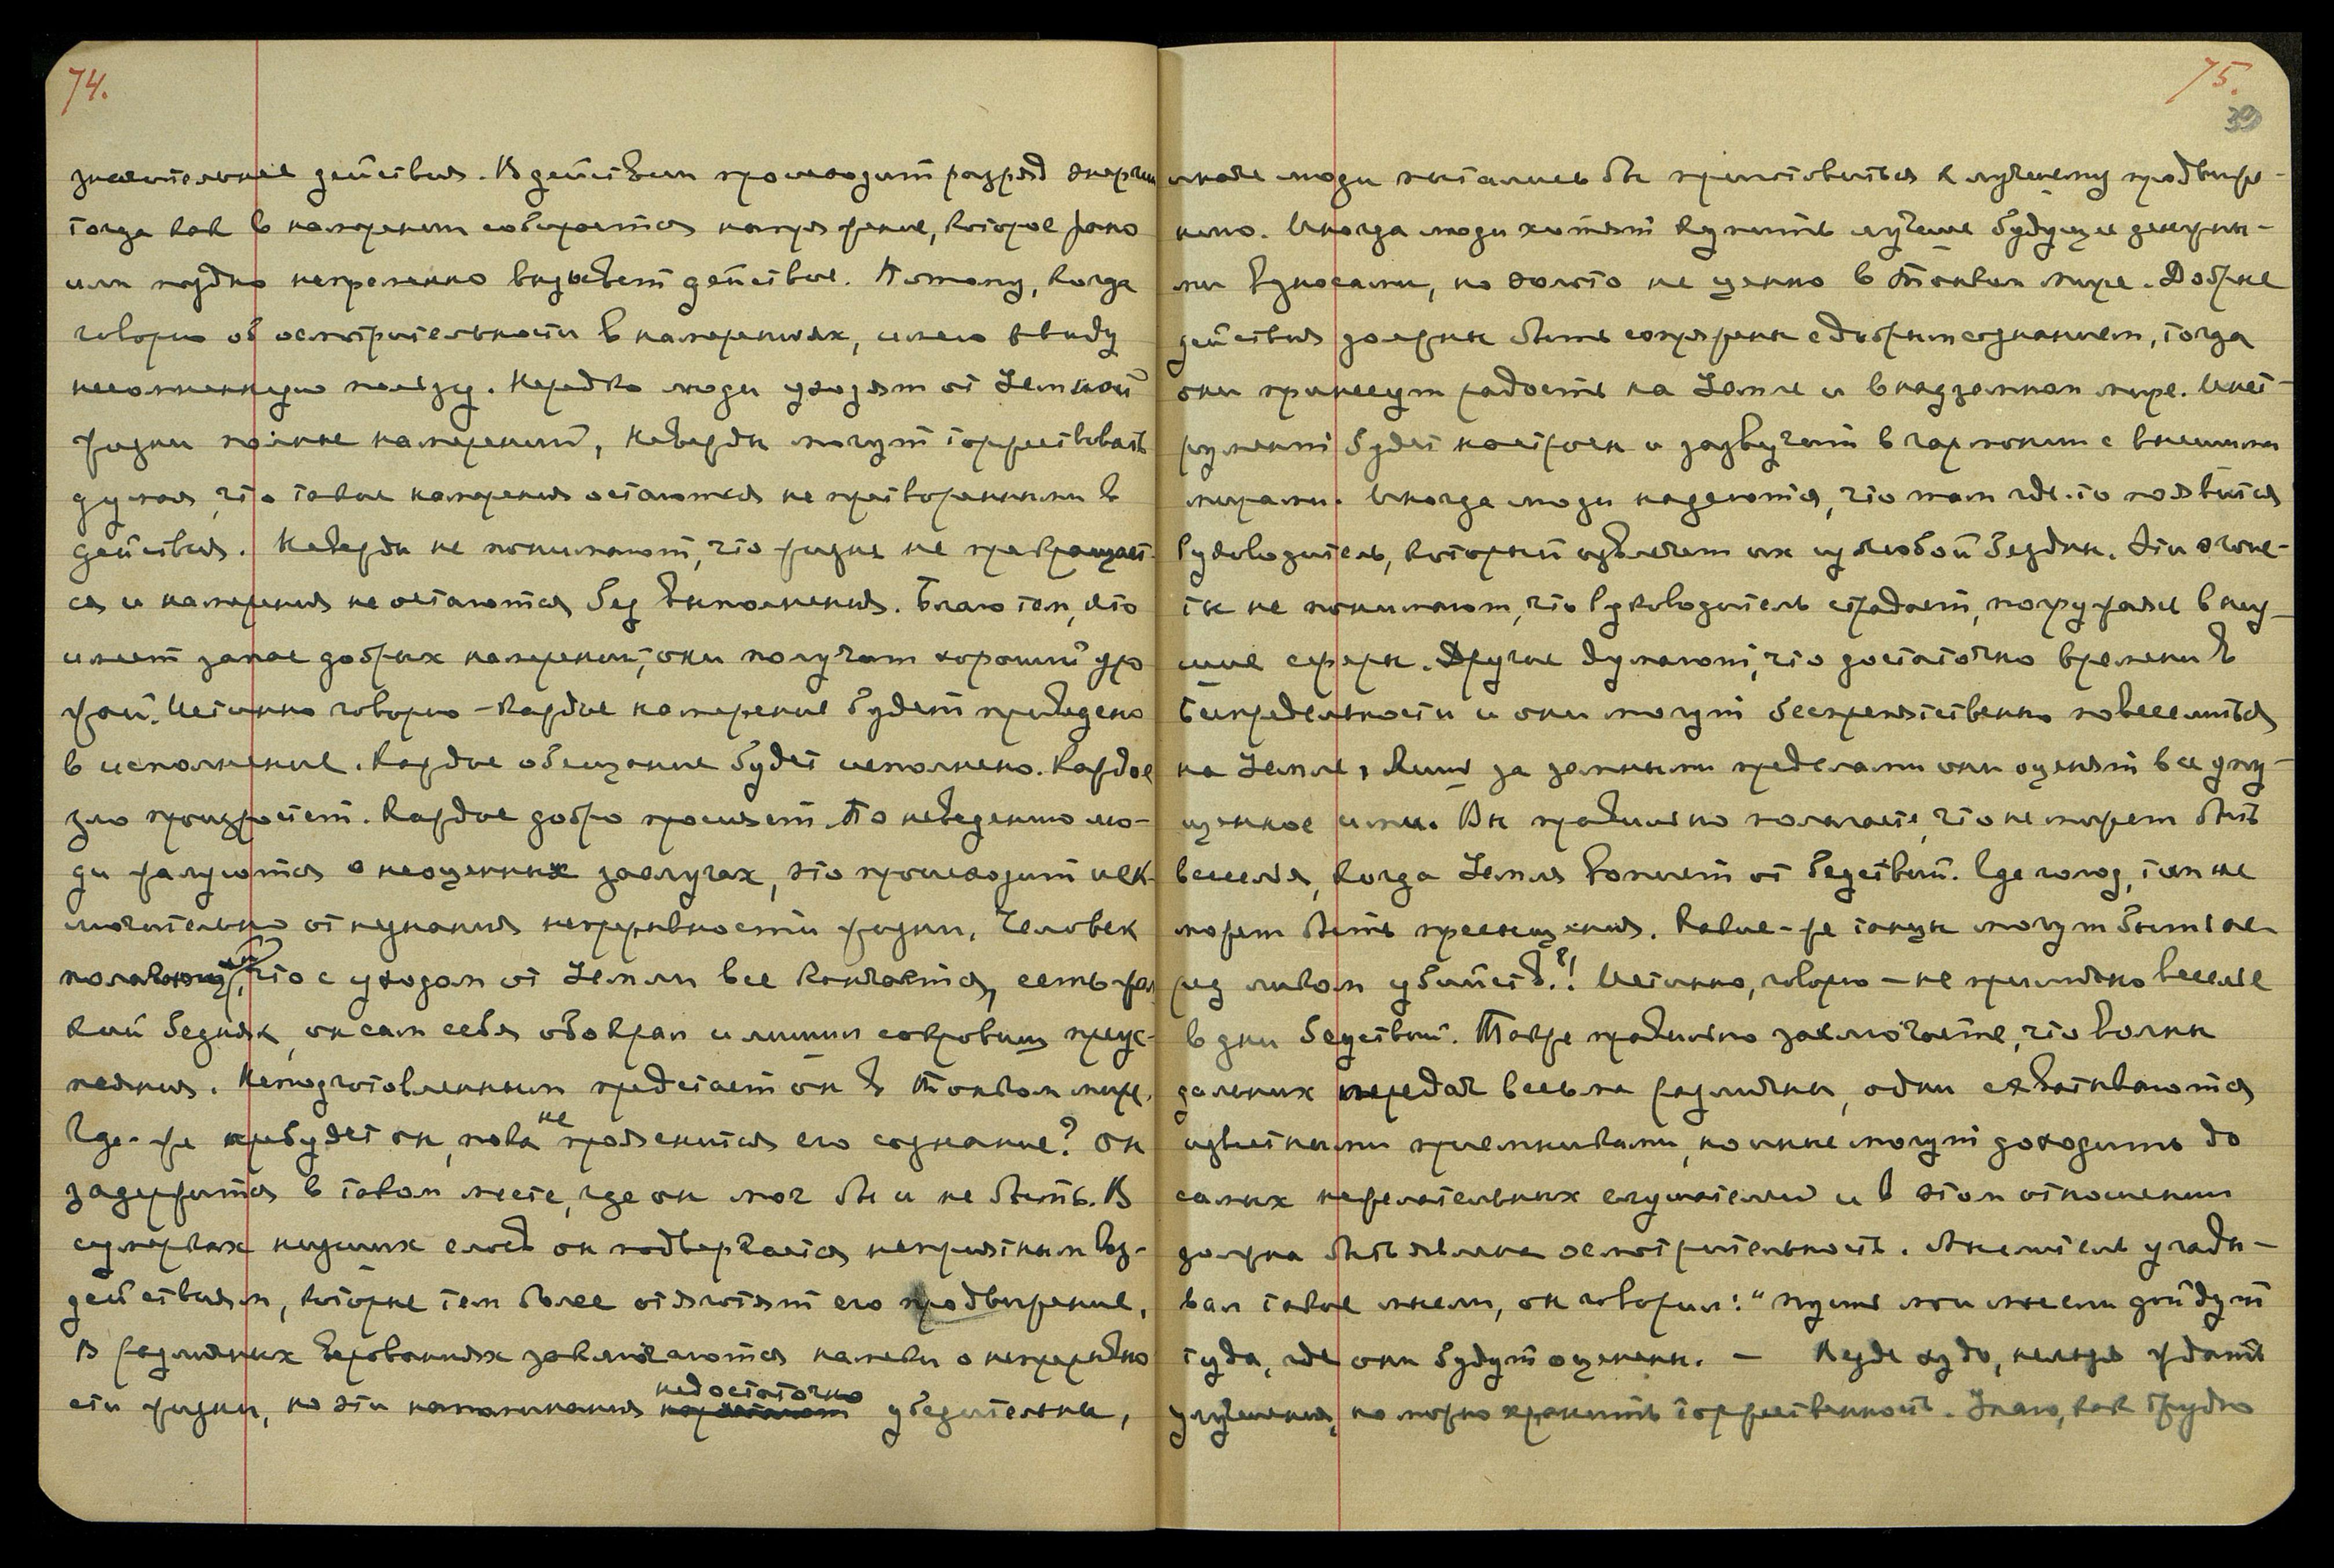 74.
значительнее действия. В действии происходит разряд энергии
тогда как в намерении собирается напряжение, которое рано
или поздно непременно вызывет действие. Потому, когда
говорю об осмотрительности в намерениях, имею ввиду
несомненную пользу. Нередко люди уходят от Земной
жизни полные намерений, невежды могут торжествовать
думая, что такие намерения остаются не претворенными в
действия. Невежды не понимают, что жизнь не прекращает-
ся и намерения не остаются без выполнения. Благо тем, кто
имеет запас добрых намерений, они получат хороший уро
жай. Истинно говорю – каждое намерение будет приведено
в исполнение. Каждое обещание будет исполнено. Каждое
зло произрастет. Каждое добро просияет. По неведению лю-
ди жалуются о неоценных заслугах, это происходит иск-
лючительно от незнания непрерывности жизни. Человек
полагающий, что с уходом от Земли все кончается, есть жал
кий бедняк, он сам себя обокрал и лишил сокровищ преус-
пеяния. Неподготовленным предстает он в Тонком мире.
Где-же пребудет он, пока не прояснится его сознание? Он
задержится в таком месте, где он мог бы и не быть. В
сумерках низших слоев он подвергается неприятным воз-
действиям, которые тем более отяготят его продвижение.
В различных верованиях заключаются намеки о непрерывно
сти жизни, но эти напоминания недостаточно убедительны,
75.
39
иначе люди пытались бы приготовиться к лучшему продвиже-
нию. Иногда люди хотят купить лучшее будущее денежны-
ми взносами, но золото не ценно в Тонком мире. Добрые
действия должны быть сопряжены с добрым сознанием, тогда
они принесут радость на Земле и в надземном мире. Инст-
румент будет настроен и зазвучит в гармонии с высшими
мирами. Иногда люди надеются, что там где-то появится
Руководитель, который извлечет их из любой бездны. Эти эгоис-
ты не понимают, что Руководитель страдает, погружаясь в низ-
шие сферы. Другие думают, что достаточно времени в
Беспредельности и они могут беспрепятственно повеселиться
на Земле, лишь за земными пределами они оценят все упу-
щенное ими. Вы правильно полагаете, что не может быть
веселья, когда Земля вопиет от бедствий. Где голод, там не
может быть пресыщения. Какие-же танцы могут быть пе-
ред ликом убийств?! Истинно, говорю – не прилично веселье
в дни бедствий. Также правильно заключаете, что волны
дальних передач весьма различны, одни схватываются
известными приемниками, но иные могут доходить до
самых нежелательных слушателей и в этом отношении
должна быть явлена осмотрительность. Мыслитель угады-
вал такие мысли, он говорил: "пусть мои мысли дойдут
туда, где они будут оценены. – Везде худо, нельзя ждать
улучшения, но можно хранить торжественность. Знаю, как трудно